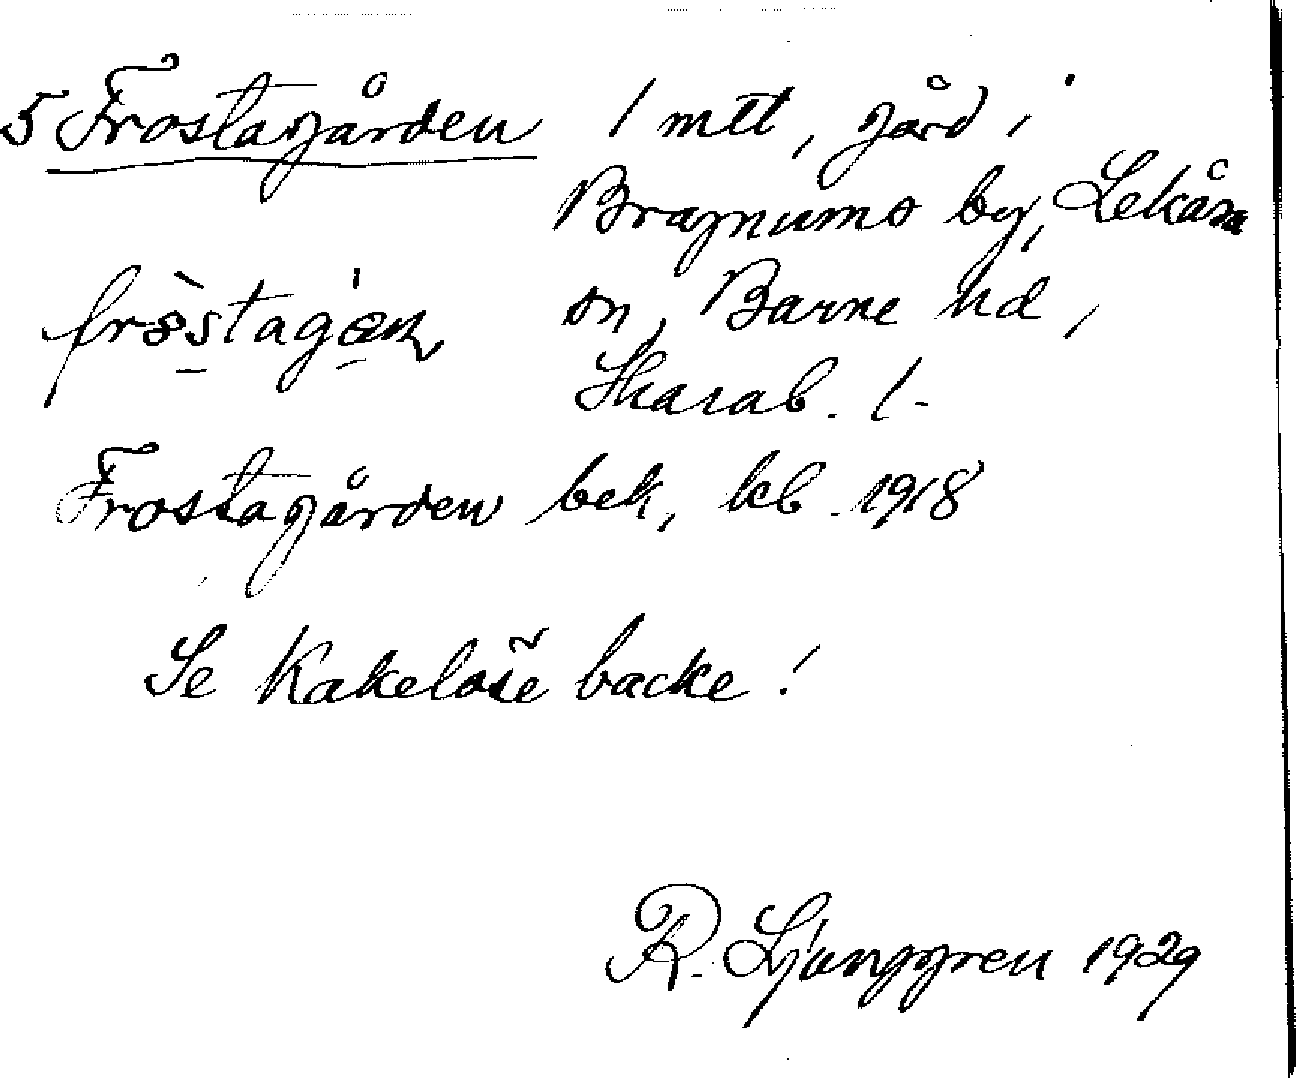 5 Frostagården 1 mtl, gård i
Bragnums by, Lekåsa
sn, Barne hd,
Skarab. l.
Frostagården bek, kb. 1918
Se Kakelose backe!
R. Ljunggren 1929